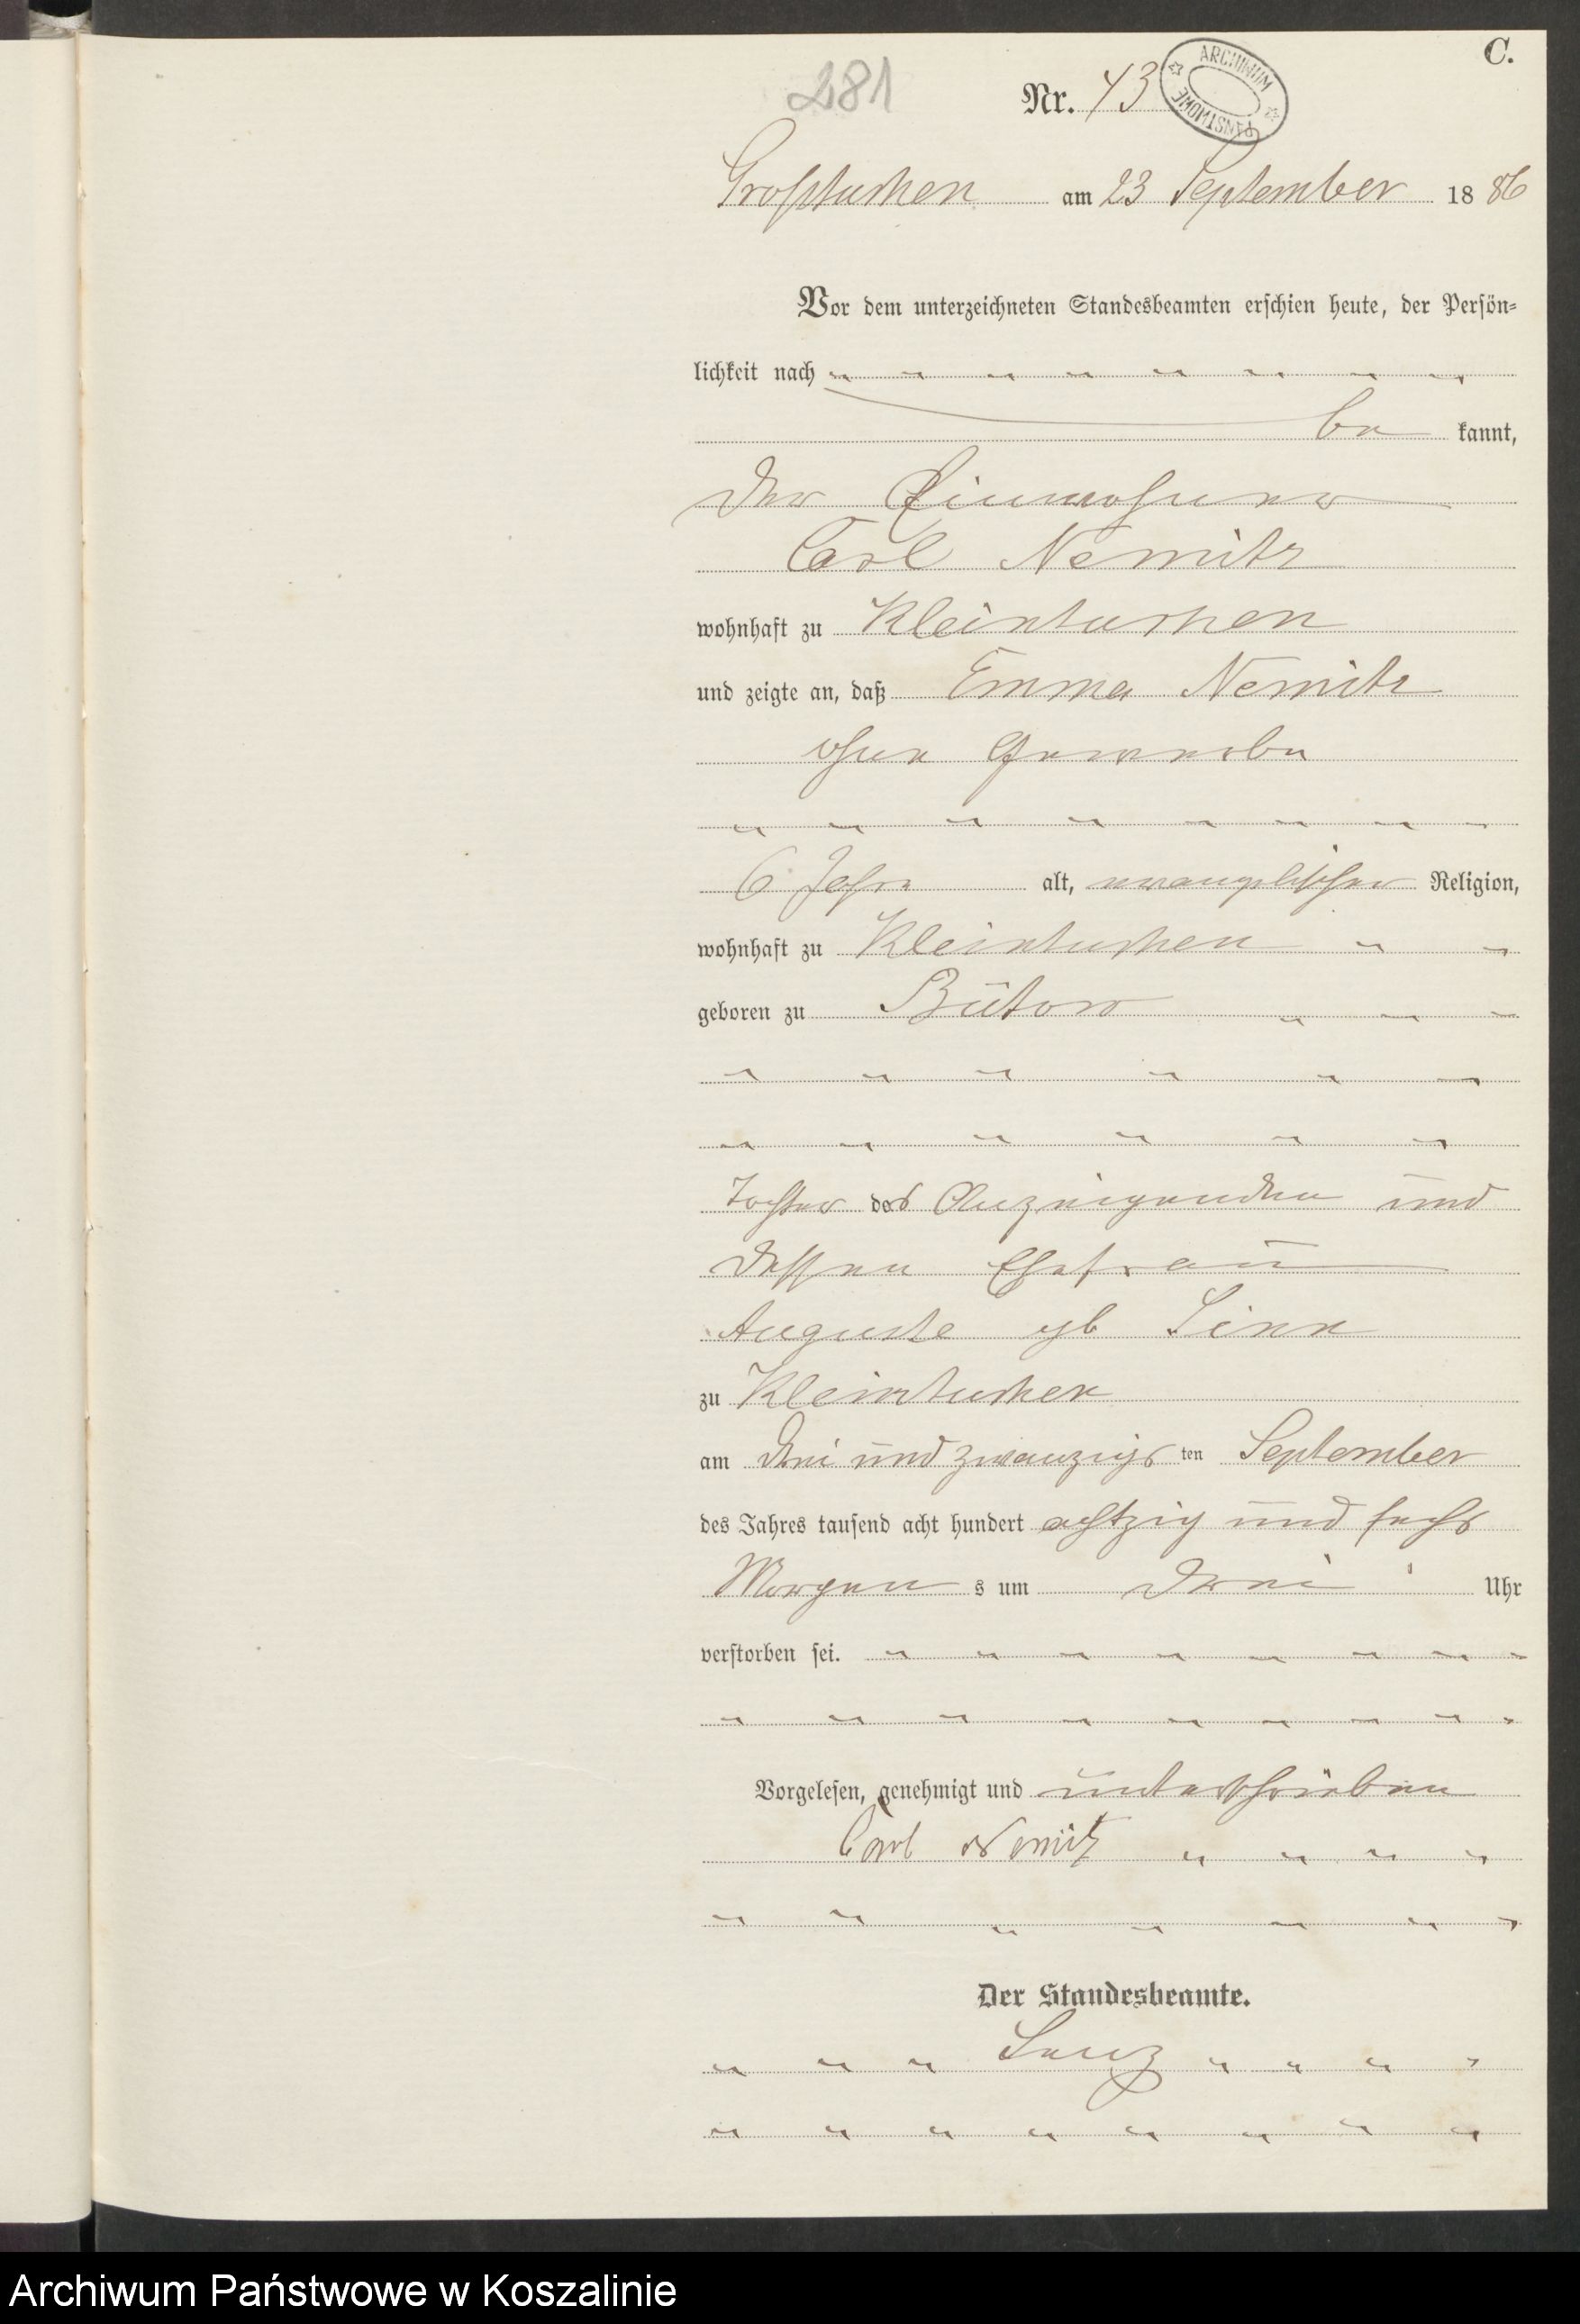 C.
281
Nr. 43
ARCHIWUM PAŃSTWOWE
Großtuchen am 23 September 1886
Vor dem unterzeichneten Standesbeamten erschien heute, der Persön-
lichkeit nach
be kannt,
der Einwohner
Carl Nemitz
wohnhaft zu Kleintuchen
und zeigte an, daß Emma Nemitz
ohne Gewerbe
6 Jahre alt, evangelischer Religion,
wohnhaft zu Kleintuchen
geboren zu Bütow
Tochter des Anzeigenden und
dessen Ehefrau
Auguste gb
zu Kleintuchen
am drei und zwanzigs ten September
des Jahres tausend acht hundert achtzig und sechs
Morgen s um drei Uhr
verstorben sei.
Vorgelesen, genehmigt und unterschrieben
Carl Nemitz
Der Standesbeamte.
Archiwum Państwowe w Koszalinie